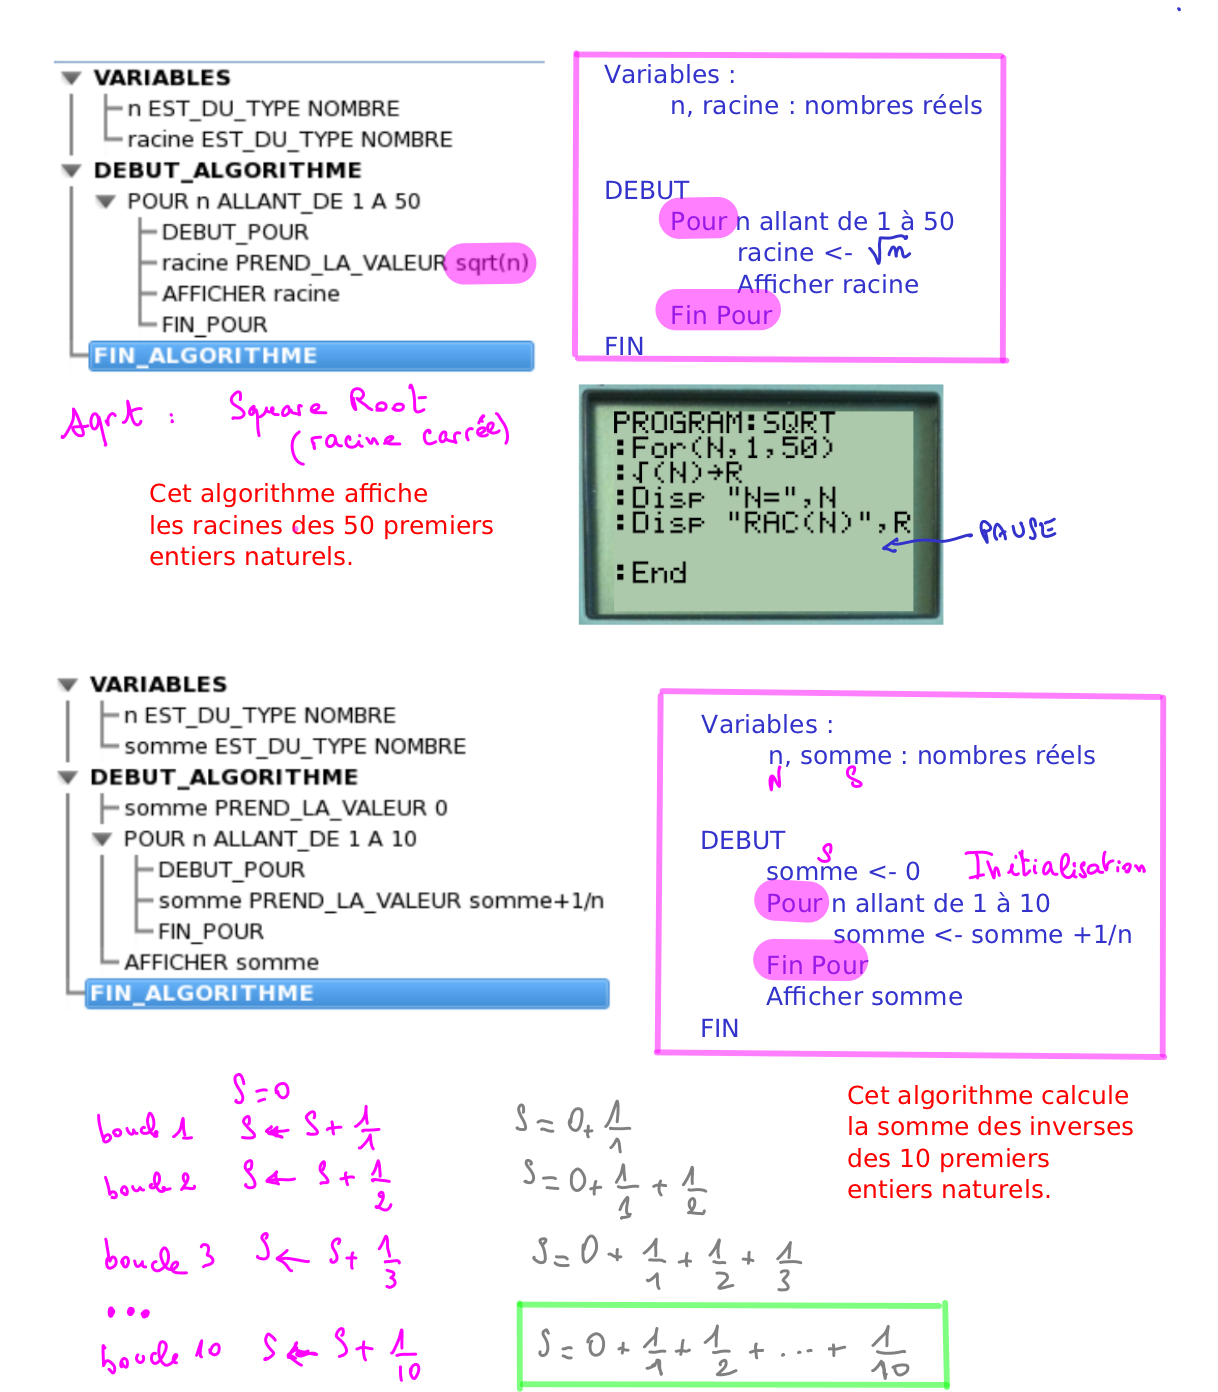 VARIABLES
n EST_DU_TYPE NOMBRE
racine EST_DU_TYPE NOMBRE
DEBUT_ALGORITHME
POUR n ALLANT_DE 1 A 50
DEBUT_POUR
racine PREND_LA_VALEUR sqrt(n)
AFFICHER racine
FIN_POUR
FIN_ALGORITHME
Variables :
n, racine : nombres réels
DEBUT
Pour n allant de 1 à 50
racine <- √n
Afficher racine
Fin Pour
FIN
Sqrt : Square Root
(racine carrée)
Cet algorithme affiche
les racines des 50 premiers
entiers naturels.
PROGRAM:SQRT
:For(N,1,50)
:√(N)→R
:Disp "N=",N
:Disp "RAC(N)",R
:End
PAUSE
VARIABLES
n EST_DU_TYPE NOMBRE
somme EST_DU_TYPE NOMBRE
DEBUT_ALGORITHME
somme PREND_LA_VALEUR 0
POUR n ALLANT_DE 1 A 10
DEBUT_POUR
somme PREND_LA_VALEUR somme+1/n
FIN_POUR
AFFICHER somme
FIN_ALGORITHME
Variables :
n, somme : nombres réels
N S
DEBUT
S
somme <- 0 Initialisation
Pour n allant de 1 à 10
somme <- somme +1/n
Fin Pour
Afficher somme
FIN
Cet algorithme calcule
la somme des inverses
des 10 premiers
entiers naturels.
S=0
boucle 1 S ← S + 1/1 S = 0 + 1/1
boucle 2 S ← S + 1/2 S = 0 + 1/1 + 1/2
boucle 3 S ← S + 1/3 S = 0 + 1/1 + 1/2 + 1/3
...
boucle 10 S ← S + 1/10 S = 0 + 1/1 + 1/2 + ... + 1/10